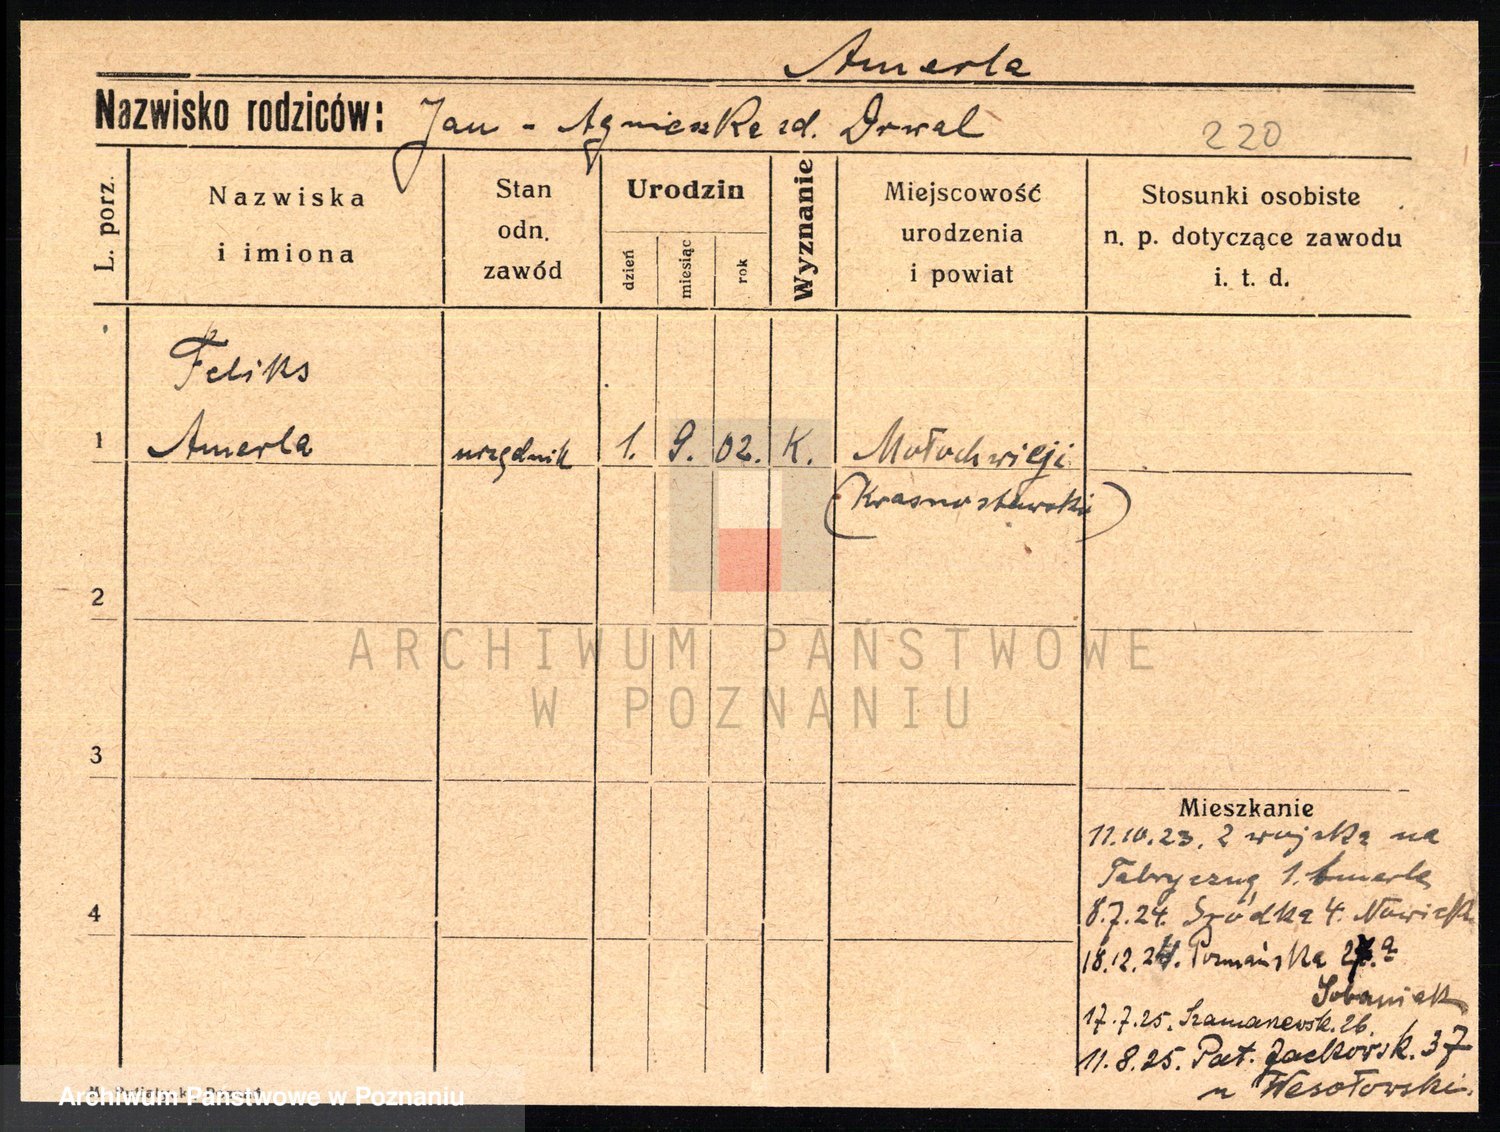 Amerla
Nazwisko rodziców: Jan - Agnieszka zd. Drwal
220
L. porz.
Nazwiska
i imiona
Stan
odn.
zawód
Urodzin
dzień
miesiąc
rok
Wyznanie
Miejscowość
urodzenia
i powiat
Stosunki osobiste
n. p. dotyczące zawodu
i. t. d.
Feliks
1 Amerla urzędnik 1. 9. 02. K. Mołochwieji
(Krasnostawski)
2
ARCHIWUM PAŃSTWOWE
W POZNANIU
3
Mieszkanie
11.10.23. z wojska na
Fabryczną 1. Amerla
4
8.7.24. Szódka 4. Nowicka
18.12.24. Poznańska
Sobaniak
17.7.25. Szamarzewsk. 26.
11.8.25. Pat. Jackowsk. 37
u Wesołowski.
Archiwum Państwowe w Poznaniu